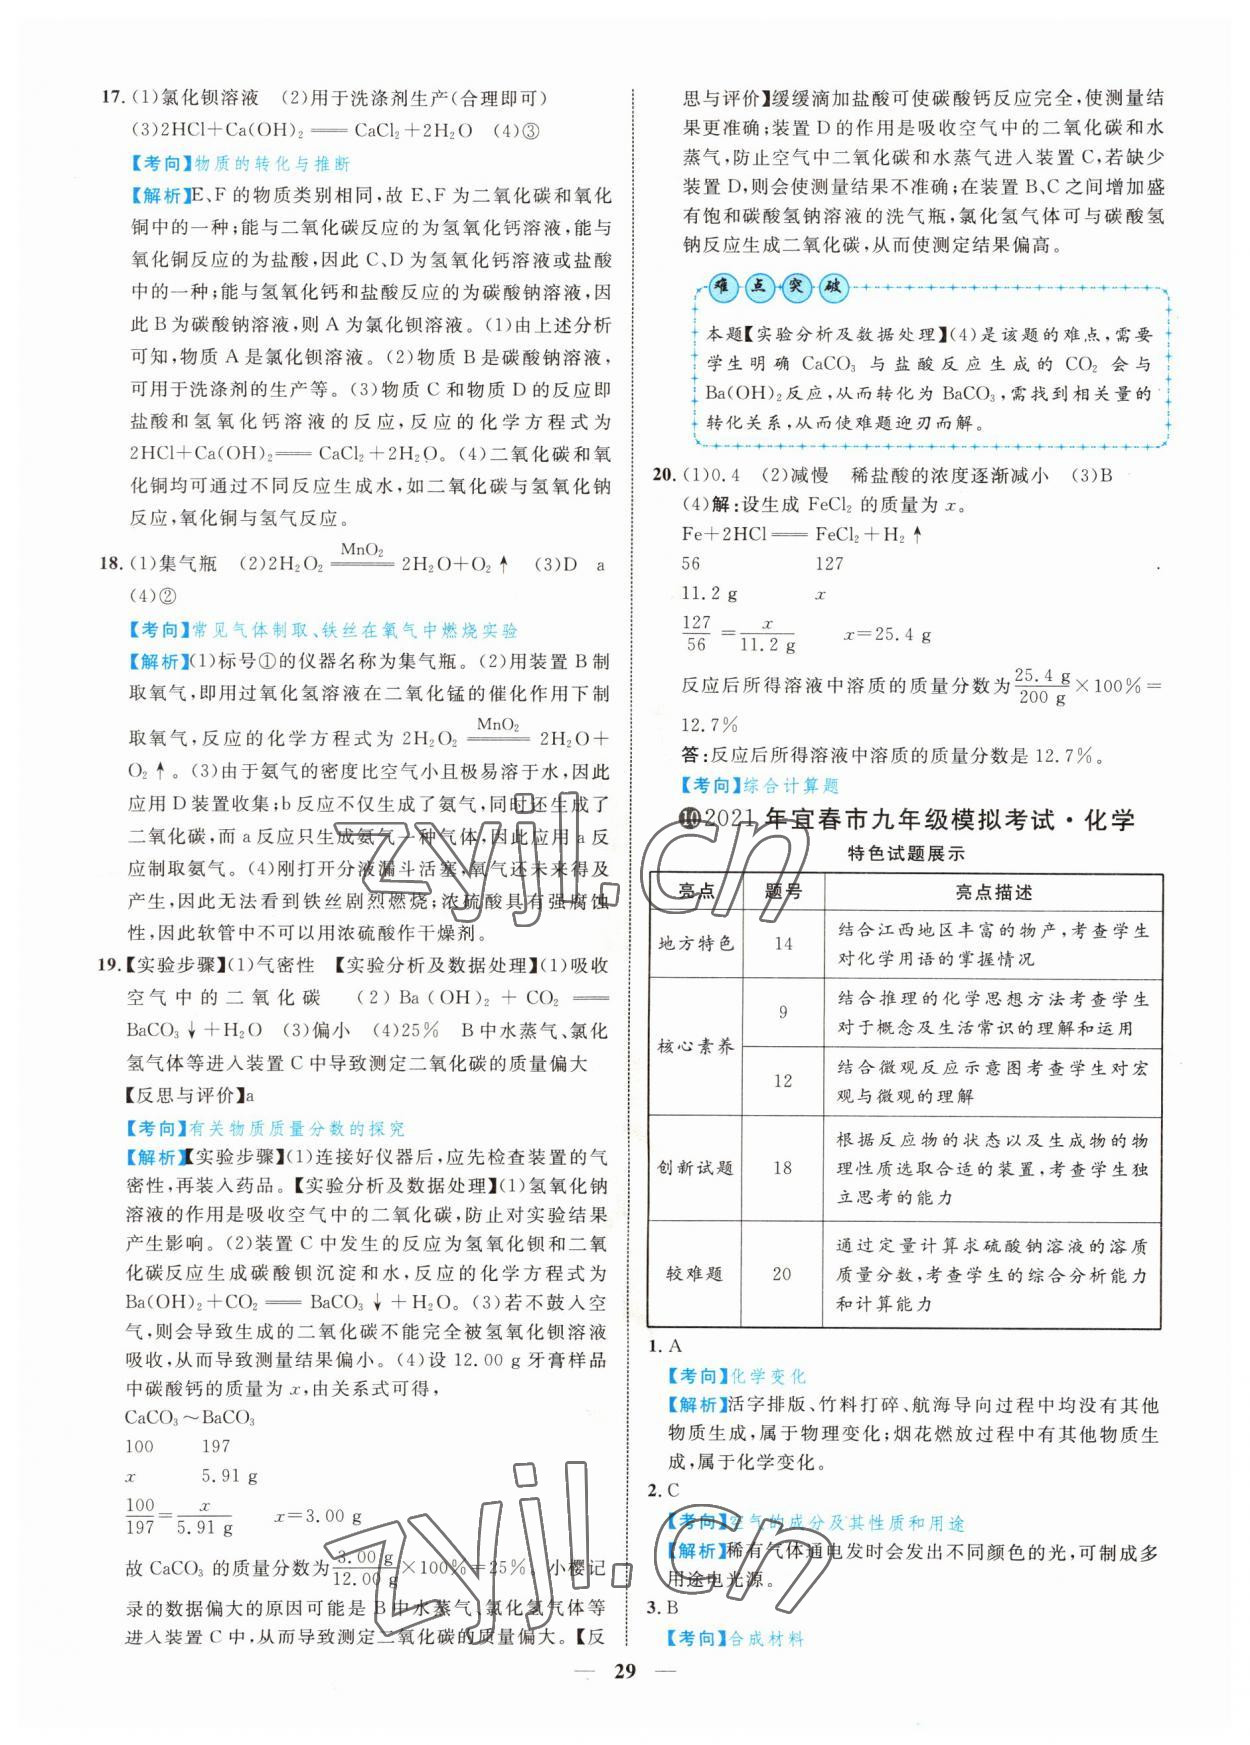 17. (1)氯化钡溶液　(2)用于洗涤剂生产(合理即可)
(3)2HCl+Ca(OH)₂═══CaCl₂+2H₂O　(4)③
【考向】物质的转化与推断
【解析】E、F的物质类别相同,故E、F为二氧化碳和氧化
铜中的一种;能与二氧化碳反应的为氢氧化钙溶液,能与
氧化铜反应的为盐酸,因此C、D为氢氧化钙溶液或盐酸
中的一种;能与氢氧化钙和盐酸反应的为碳酸钠溶液,因
此B为碳酸钠溶液,则A为氯化钡溶液。(1)由上述分析
可知,物质A是氯化钡溶液。(2)物质B是碳酸钠溶液,
可用于洗涤剂的生产等。(3)物质C和物质D的反应即
盐酸和氢氧化钙溶液的反应,反应的化学方程式为
2HCl+Ca(OH)₂═══CaCl₂+2H₂O。(4)二氧化碳和氧
化铜均可通过不同反应生成水,如二氧化碳与氢氧化钠
反应,氧化铜与氢气反应。
18. (1)集气瓶　(2)2H₂O₂ ═MnO₂═ 2H₂O+O₂↑　(3)D　a
(4)②
【考向】常见气体制取、铁丝在氧气中燃烧实验
【解析】(1)标号①的仪器名称为集气瓶。(2)用装置B制
取氧气,即用过氧化氢溶液在二氧化锰的催化作用下制
取氧气,反应的化学方程式为2H₂O₂ ═MnO₂═ 2H₂O+
O₂↑。(3)由于氨气的密度比空气小且极易溶于水,因此
应用D装置收集;b反应不仅生成了氨气,同时还生成了
二氧化碳,而a反应只生成氨气一种气体,因此用a反
应制取氨气。(4)刚打开分液漏斗活塞,氧气还未来得及
产生,因此无法看到铁丝剧烈燃烧;浓硫酸具有强腐蚀
性,因此软管中不可以用浓硫酸作干燥剂。
19. 【实验步骤】(1)气密性　【实验分析及数据处理】(1)吸收
空气中的二氧化碳　(2)Ba(OH)₂+CO₂═══
BaCO₃↓+H₂O　(3)偏小　(4)25%　B中水蒸气、氯化
氢气体等进入装置C中导致测定二氧化碳的质量偏大
【反思与评价】a
【考向】有关物质质量分数的探究
【解析】【实验步骤】(1)连接好仪器后,应先检查装置的气
密性,再装入药品。【实验分析及数据处理】(1)氢氧化钠
溶液的作用是吸收空气中的二氧化碳,防止对实验结果
产生影响。(2)装置C中发生的反应为氢氧化钡和二氧
化碳反应生成碳酸钡沉淀和水,反应的化学方程式为
Ba(OH)₂+CO₂═══BaCO₃↓+H₂O。(3)若不鼓入空
气,则会导致生成的二氧化碳不能完全被氢氧化钡溶液
吸收,从而导致测量结果偏小。(4)设12.00 g牙膏样品
中碳酸钙的质量为x,由关系式可得,
CaCO₃～BaCO₃
100　197
x　5.91 g
100/197=x/5.91 g　x=3.00 g
故CaCO₃的质量分数为3.00 g/12.00 g×100%=25%。小樱记
录的数据偏大的原因可能是B中水蒸气、氯化氢气体等
进入装置C中,从而导致测定二氧化碳的质量偏大。【反
思与评价】缓缓滴加盐酸可使碳酸钙反应完全,使测量结
果更准确;装置D的作用是吸收空气中的二氧化碳和水
蒸气,防止空气中二氧化碳和水蒸气进入装置C,若缺少
装置D,则会使测量结果不准确;在装置B、C之间增加盛
有饱和碳酸氢钠溶液的洗气瓶,氯化氢气体可与碳酸氢
钠反应生成二氧化碳,从而使测定结果偏高。
难点突破
本题【实验分析及数据处理】(4)是该题的难点,需要
学生明确CaCO₃与盐酸反应生成的CO₂会与
Ba(OH)₂反应,从而转化为BaCO₃,需找到相关量的
转化关系,从而使难题迎刃而解。
20. (1)0.4　(2)减慢　稀盐酸的浓度逐渐减小　(3)B
(4)解:设生成FeCl₂的质量为x。
Fe+2HCl═══FeCl₂+H₂↑
56　127
11.2 g　x
127/56=x/11.2 g　x=25.4 g
反应后所得溶液中溶质的质量分数为25.4 g/200 g×100%=
12.7%
答:反应后所得溶液中溶质的质量分数是12.7%。
【考向】综合计算题
⑩2021年宜春市九年级模拟考试·化学
特色试题展示
亮点　题号　亮点描述
地方特色　14　结合江西地区丰富的物产,考查学生
对化学用语的掌握情况
核心素养　9　结合推理的化学思想方法考查学生
对于概念及生活常识的理解和运用
12　结合微观反应示意图考查学生对宏
观与微观的理解
创新试题　18　根据反应物的状态以及生成物的物
理性质选取合适的装置,考查学生独
立思考的能力
较难题　20　通过定量计算求硫酸钠溶液的溶质
质量分数,考查学生的综合分析能力
和计算能力
1. A
【考向】化学变化
【解析】活字排版、竹料打碎、航海导向过程中均没有其他
物质生成,属于物理变化;烟花燃放过程中有其他物质生
成,属于化学变化。
2. C
【考向】空气的成分及其性质和用途
【解析】稀有气体通电发时会发出不同颜色的光,可制成多
用途电光源。
3. B
【考向】合成材料
— 29 —
zyjl.cn
zyjl.cn